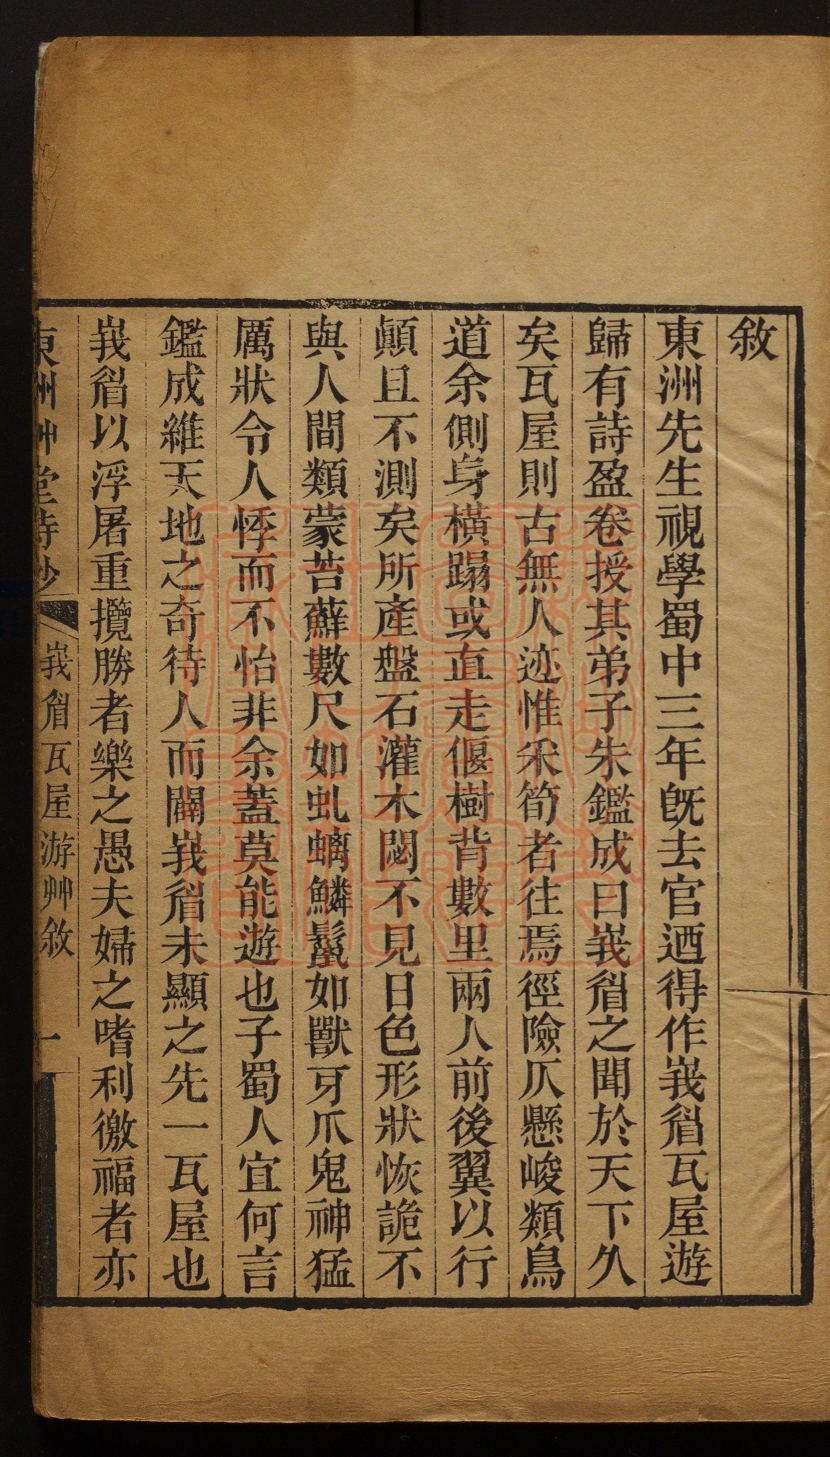 敘
東洲先生視學蜀中三年旣去官迺得作峩睂瓦屋遊
歸有詩盈卷授其弟子朱鑑成曰峩睂之聞於天下久
矣瓦屋則古無人迹惟釆筍者往焉徑險仄懸峻類鳥
道余側身橫蹋或直走偃樹背數里兩人前後翼以行
顚且不測矣所產盤石灌木閟不見日色形狀恢詭不
與人間類蒙苔蘚數尺如虬螭鱗鬣如獸牙爪鬼神猛
厲狀令人悸而不怡非余蓋莫能遊也子蜀人宜何言
鑑成維天地之奇待人而闢峩睂未顯之先一瓦屋也
峩睂以浮屠重攬勝者樂之愚夫婦之嗜利徼福者亦
東洲艸堂詩鈔
峩睂瓦屋游艸敘
一